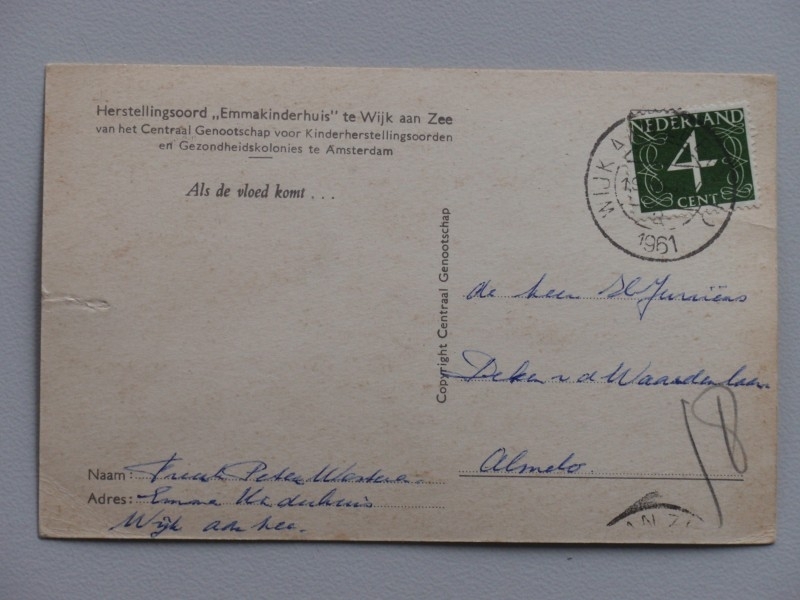 Herstellingsoord „Emmakinderhuis" te Wijk aan Zee
van het Centraal Genootschap voor Kinderherstellingsoorden
en Gezondheidskolonies te Amsterdam
Als de vloed komt . . .
NEDERLAND
4
CENT
WIJK A
1961
Copyright Centraal Genootschap
de heer
Deken v d Waardenlaan
Almelo.
Naam: Peter
Adres: Emma Kinderhuis
Wijk aan zee.
AN Z